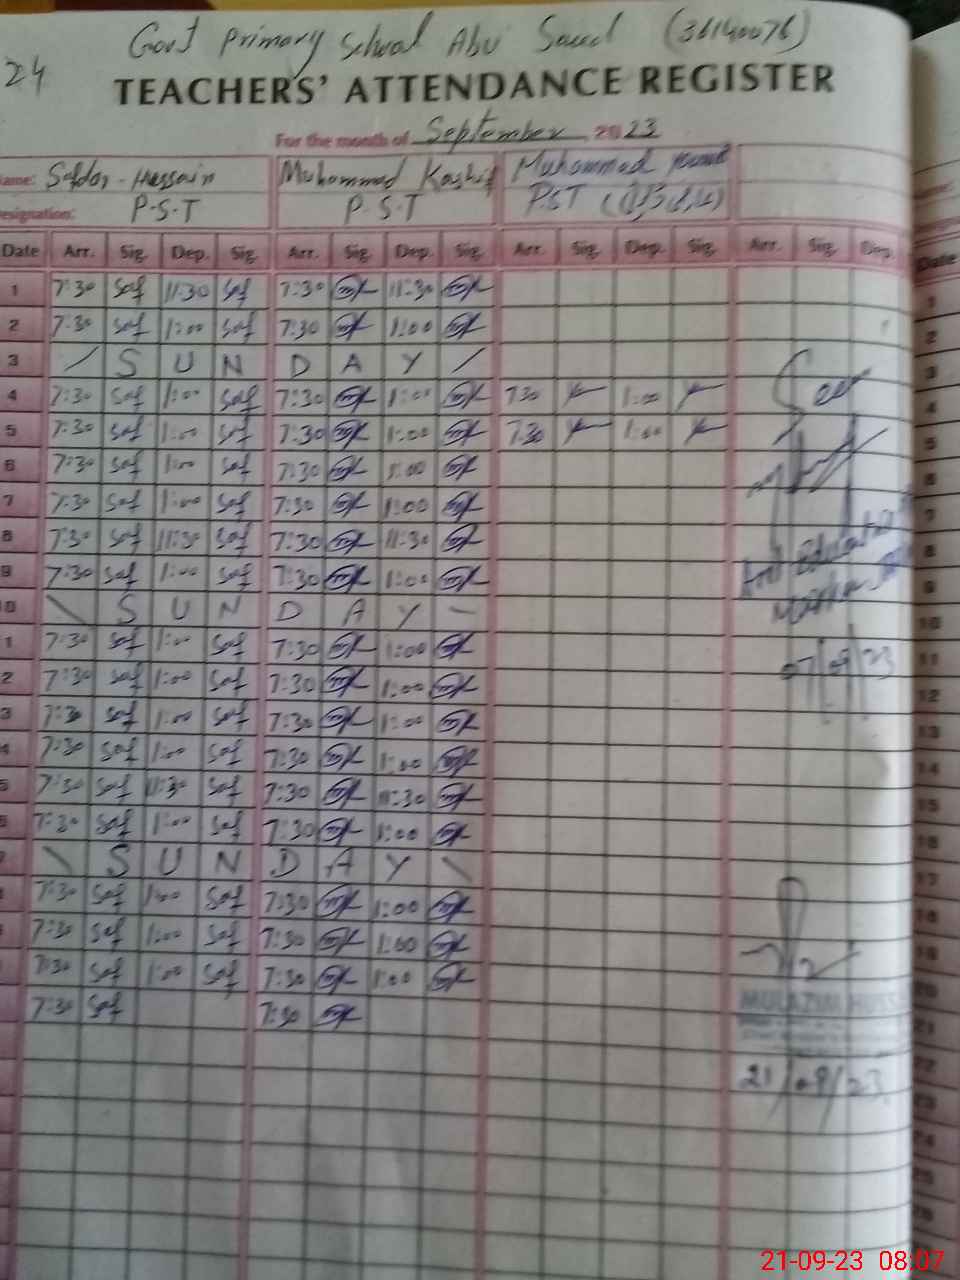 24
Govt Primary School Abu Saeed (36140076)
TEACHERS' ATTENDANCE REGISTER
For the month of September 2023
Name: Safdar Hussain Muhammad Kashif Muhammad
Designation: P.S.T P.S.T PST
Date Arr. Sig. Dep. Sig. Arr. Sig. Dep. Sig. Arr. Sig. Dep. Sig. Arr. Sig. Dep. Date
1 7:30 Saf 11:30 Saf 7:30 11:30 1
2 7:30 Saf 1:00 Saf 7:30 1:00 2
3 / S U N D A Y / 3
4 7:30 Saf 1:00 Saf 7:30 1:00 7:30 1:00 4
5 7:30 Saf 1:00 Saf 7:30 1:00 7:30 1:00 5
6 7:30 Saf 1:00 Saf 7:30 1:00 6
7 7:30 Saf 1:00 Saf 7:30 1:00 7
8 7:30 Saf 11:30 Saf 7:30 11:30 8
9 7:30 Saf 1:00 Saf 7:30 1:00 9
10 \ S U N D A Y - 10
1 7:30 Saf 1:00 Saf 7:30 1:00 07/09/23 11
2 7:30 Saf 1:00 Saf 7:30 1:00 12
3 7:30 Saf 1:00 Saf 7:30 1:00 13
4 7:30 Saf 1:00 Saf 7:30 1:00 14
5 7:30 Saf 11:30 Saf 7:30 11:30 15
6 7:30 Saf 1:00 Saf 7:30 1:00 16
7 \ S U N D A Y \ 17
7:30 Saf 1:00 Saf 7:30 1:00 18
7:30 Saf 1:00 Saf 7:30 1:00 19
7:30 Saf 1:00 Saf 7:30 1:00 20
7:30 Saf 7:30 MULAZIM HUSS 21
22
21/09/23 23
24
25
26
21-09-23 08:07